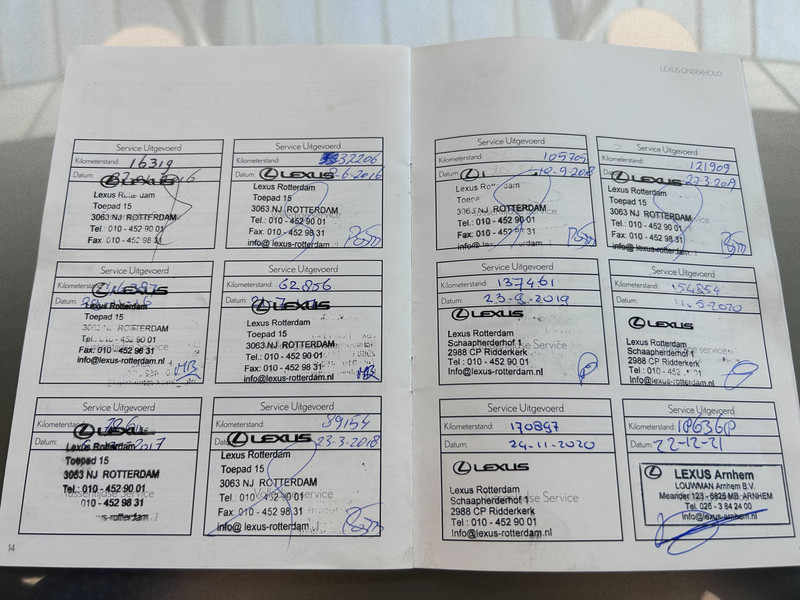 LEXUS ONDERHOUD
Service Uitgevoerd
Kilometerstand: 16319
Datum:
LEXUS
Lexus Rotterdam
Toepad 15
3063 NJ ROTTERDAM
Tel.: 010 - 452 90 01
Fax: 010 - 452 98 31
Service Uitgevoerd
Kilometerstand: 32206
Datum: -6-2016
LEXUS
Lexus Rotterdam
Toepad 15
3063 NJ ROTTERDAM
Tel.: 010 - 452 90 01
Fax: 010 - 452 98 31
info@lexus-rotterdam
Service Uitgevoerd
Kilometerstand:
Datum:
LEXUS
Lexus Rotterdam
Toepad 15
3063 NJ ROTTERDAM
Tel.: 010 - 452 90 01
Fax: 010 - 452 98 31
info@lexus-rotterdam.nl
Service Uitgevoerd
Kilometerstand: 62856
Datum:
LEXUS
Lexus Rotterdam
Toepad 15
3063 NJ ROTTERDAM
Tel.: 010 - 452 90 01
Fax: 010 - 452 98 31
info@lexus-rotterdam.nl
Service Uitgevoerd
Kilometerstand:
Datum: 2017
LEXUS
Lexus Rotterdam
Toepad 15
3063 NJ ROTTERDAM
Tel.: 010 - 452 90 01
010 - 452 98 31
-rotterdam
Service Uitgevoerd
Kilometerstand: 89154
Datum: 23-3-2018
LEXUS
Lexus Rotterdam
Toepad 15
3063 NJ ROTTERDAM
Tel. 010 - 452 90 01
Fax: 010 - 452 98 31
info@lexus-rotterdam
14
Service Uitgevoerd
Kilometerstand: 105705
Datum: -9-2018
Lexus Rotterdam
3063 NJ ROTTERDAM
Tel.: 010 - 452 90 01
Fax: 010 - 452 98 31
info@lexus-rotterdam
Service Uitgevoerd
Kilometerstand: 121909
Datum:
LEXUS
Lexus Rotterdam
Toepad 15
3063 NJ ROTTERDAM
Tel.: 010 - 452 90 01
Fax: 010 - 452 98 31
info@lexus-rotterdam
Service Uitgevoerd
Kilometerstand: 137461
Datum: 23-9-2019
LEXUS
Lexus Rotterdam
Schaapherderhof 1
2988 CP Ridderkerk
Tel : 010 - 452 90 01
Info@lexus-rotterdam.nl
Service Uitgevoerd
Kilometerstand: 154854
Datum: -5-2020
LEXUS
Lexus Rotterdam
Schaapherderhof 1
2988 CP Ridderkerk
Info@lexus-rotterdam.nl
Service Uitgevoerd
Kilometerstand: 170897
Datum: 24-11-2020
LEXUS
Lexus Rotterdam
Schaapherderhof 1
2988 CP Ridderkerk
Tel : 010 - 452 90 01
Info@lexus-rotterdam.nl
Service Uitgevoerd
Kilometerstand:
Datum: 22-12-21
LEXUS Arnhem
LOUWMAN Arnhem B.V.
Meander 123 - 6825 MB ARNHEM
Tel. 026 - 3 84 24 00
info@lexus-arnhem.nl